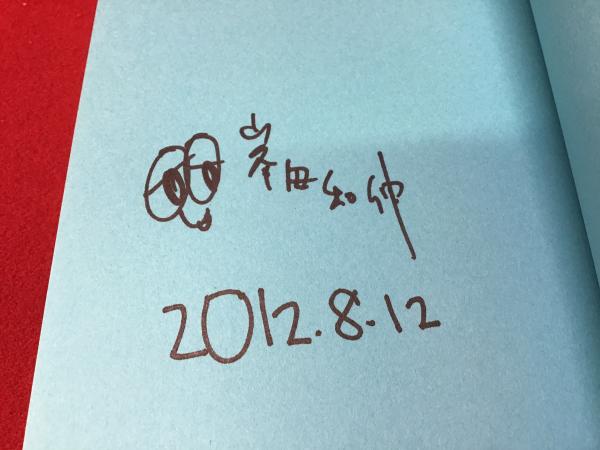 峯田和伸
2012.8.12